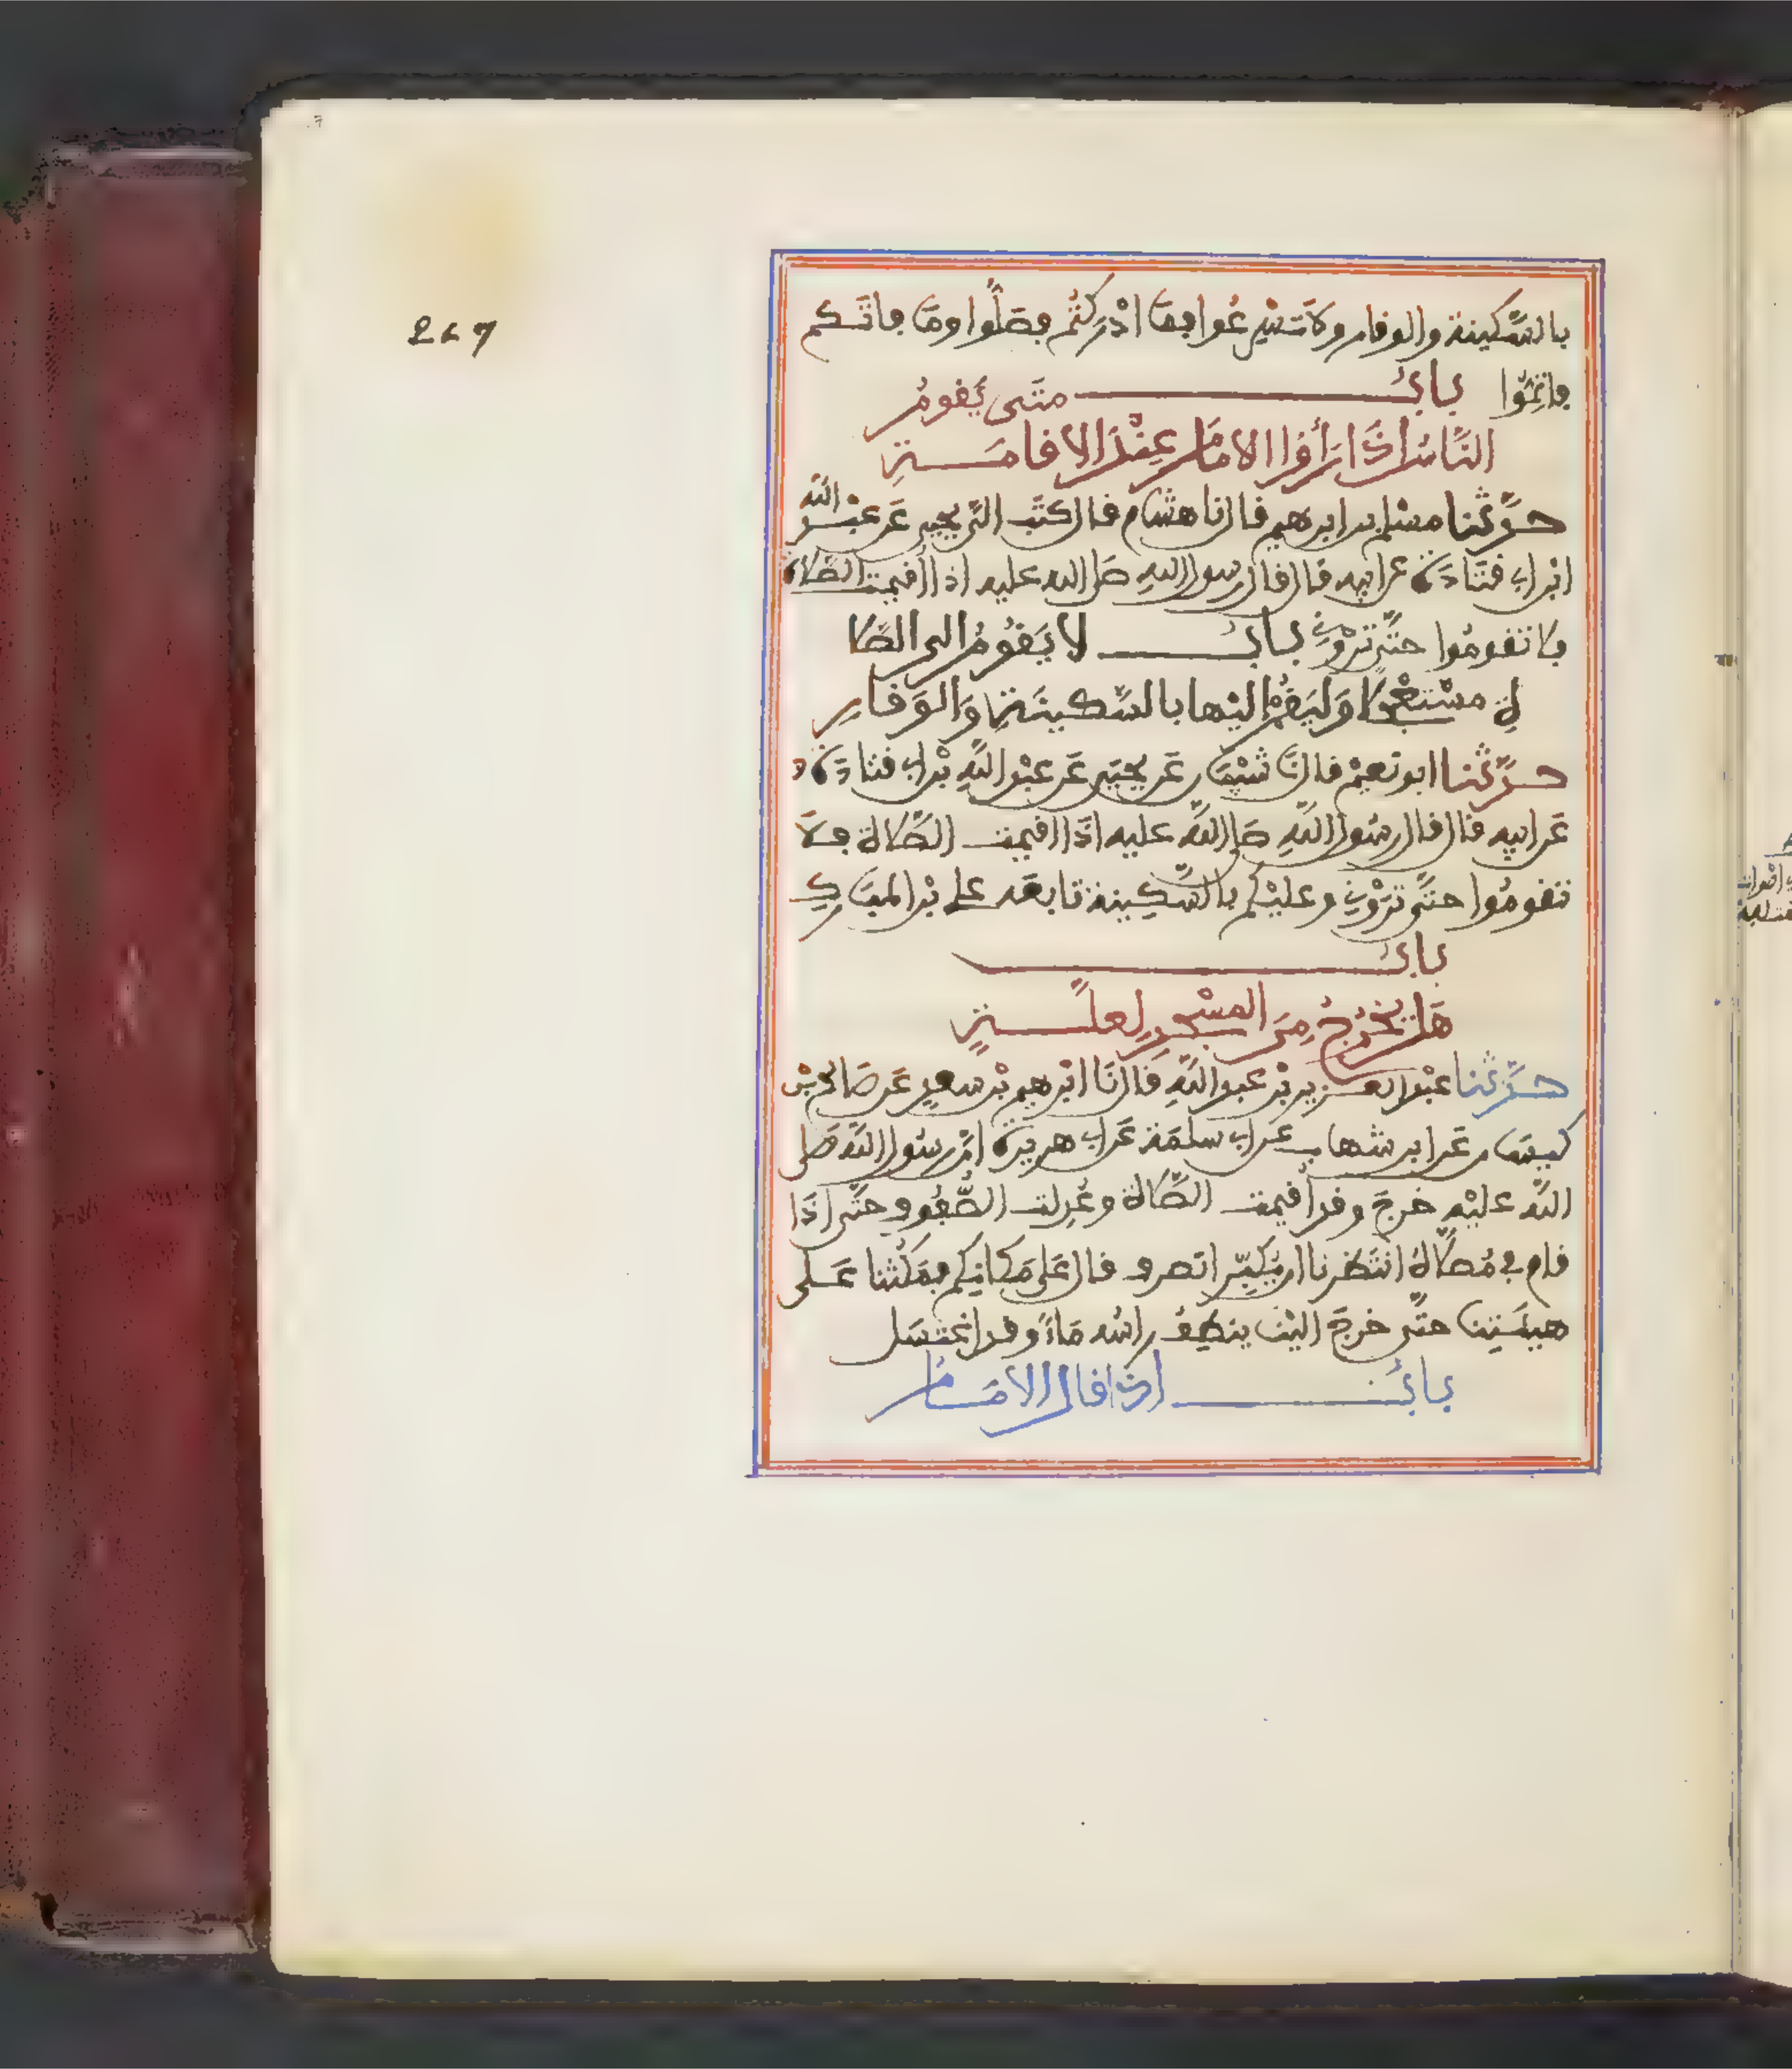 267
بالسَّكينة والوقار ولا تُسْرِعُوا فما ادْرَكْتُم فصَلُّوا وما فاتَكم
فاتِمُّوا بابُ متَى يَقومُ
النَّاسُ إذَا رَأَوُا الامَامَ عِنْدَ الاقامَةِ
حدَّثنا مسْلم بن ابرهيم قال نا هشام قال كتَب الىَّ يحيى عَن عبْد الله
ابْن ابي قتَادَة عن ابيه قال قال رسول الله صلى الله عليه اذا أُقيمت الصَّلاة
فلا تقومُوا حتَّى ترَوْني بابُ لا يَقُومُ الى الصَّلا
ةِ مسْتعْجِلا وَليَقُمْ اليْها بالسَّكينَةِ وَالوَقارِ
حدَّثنا ابو نعيْم قال نَا شيْبَان عَن يحيَى عَن عبْد اللَّهِ بْن ابي قتادَة
عَن ابيه قال قال رسُول اللَّهِ صلى اللَّه عليه اذَا اقيمت الصَّلاة فلَا
تقومُوا حتَّى ترَوْني وعليْكم بالسَّكِينة تابعَه على بْن المبَارك
بابُ
هَل يَخْرُجُ مِنَ المسْجِدِ لعلَّةٍ
حدَّثنا عبْد العزيز بْن عبد اللَّهِ قال نَا ابْرهيم بْن سعدٍ عَن صَالح بْن
كيسَان عَن ابن شهاب عَن ابي سلَمَة عَن ابي هريرة انَّ رسُول اللَّه صَلى
اللَّه عليْه خرجَ وقد أُقيمت الصَّلاة وعُدِلت الصُّفُوف حتَّى اذَا
قام في مُصلَّاهُ انتَظرْنا ان يُكبِّر انصرف قال عَلى مَكانِكم فمَكَثْنا عَلى
هيئَتِنا حتَّى خرجَ اليْنا ينطِفُ راسُه مَاءً وقد اغْتسَل
بابُ اذا قال الامَامُ